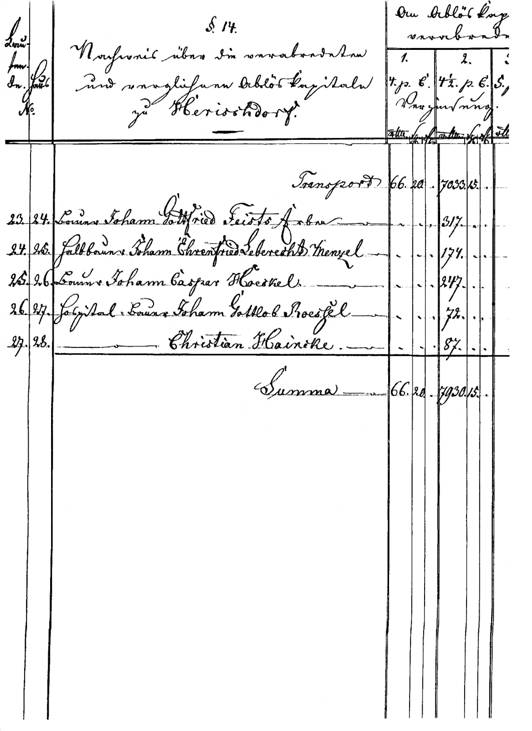 §. 14.
Nachweis über die verabredeten
und verglichnen Ablöskapitale
zu Herischdorf.
Lau-
fen-
de.
Haus
No.
An Ablös Kap
verabrede
1. 2.
4. p. C. 4½. p. C. 5. p
Verzinsung.
Transport 66. 20. . 7033. 15. .
23. 24. Bauer Johann Gottfried Feists Erben 317. . .
24. 25. Halbbauer Johann Ehrenfried Leberecht Menzel 174. . .
25. 26. Bauer Johann Caspar Hoeckel. 247. . .
26. 27. Hospital-Bauer Johann Gottlob Roessel 72. . .
27. 28. Christian Hainske. 87. . .
Summa 66. 20. . 7930. 15. .